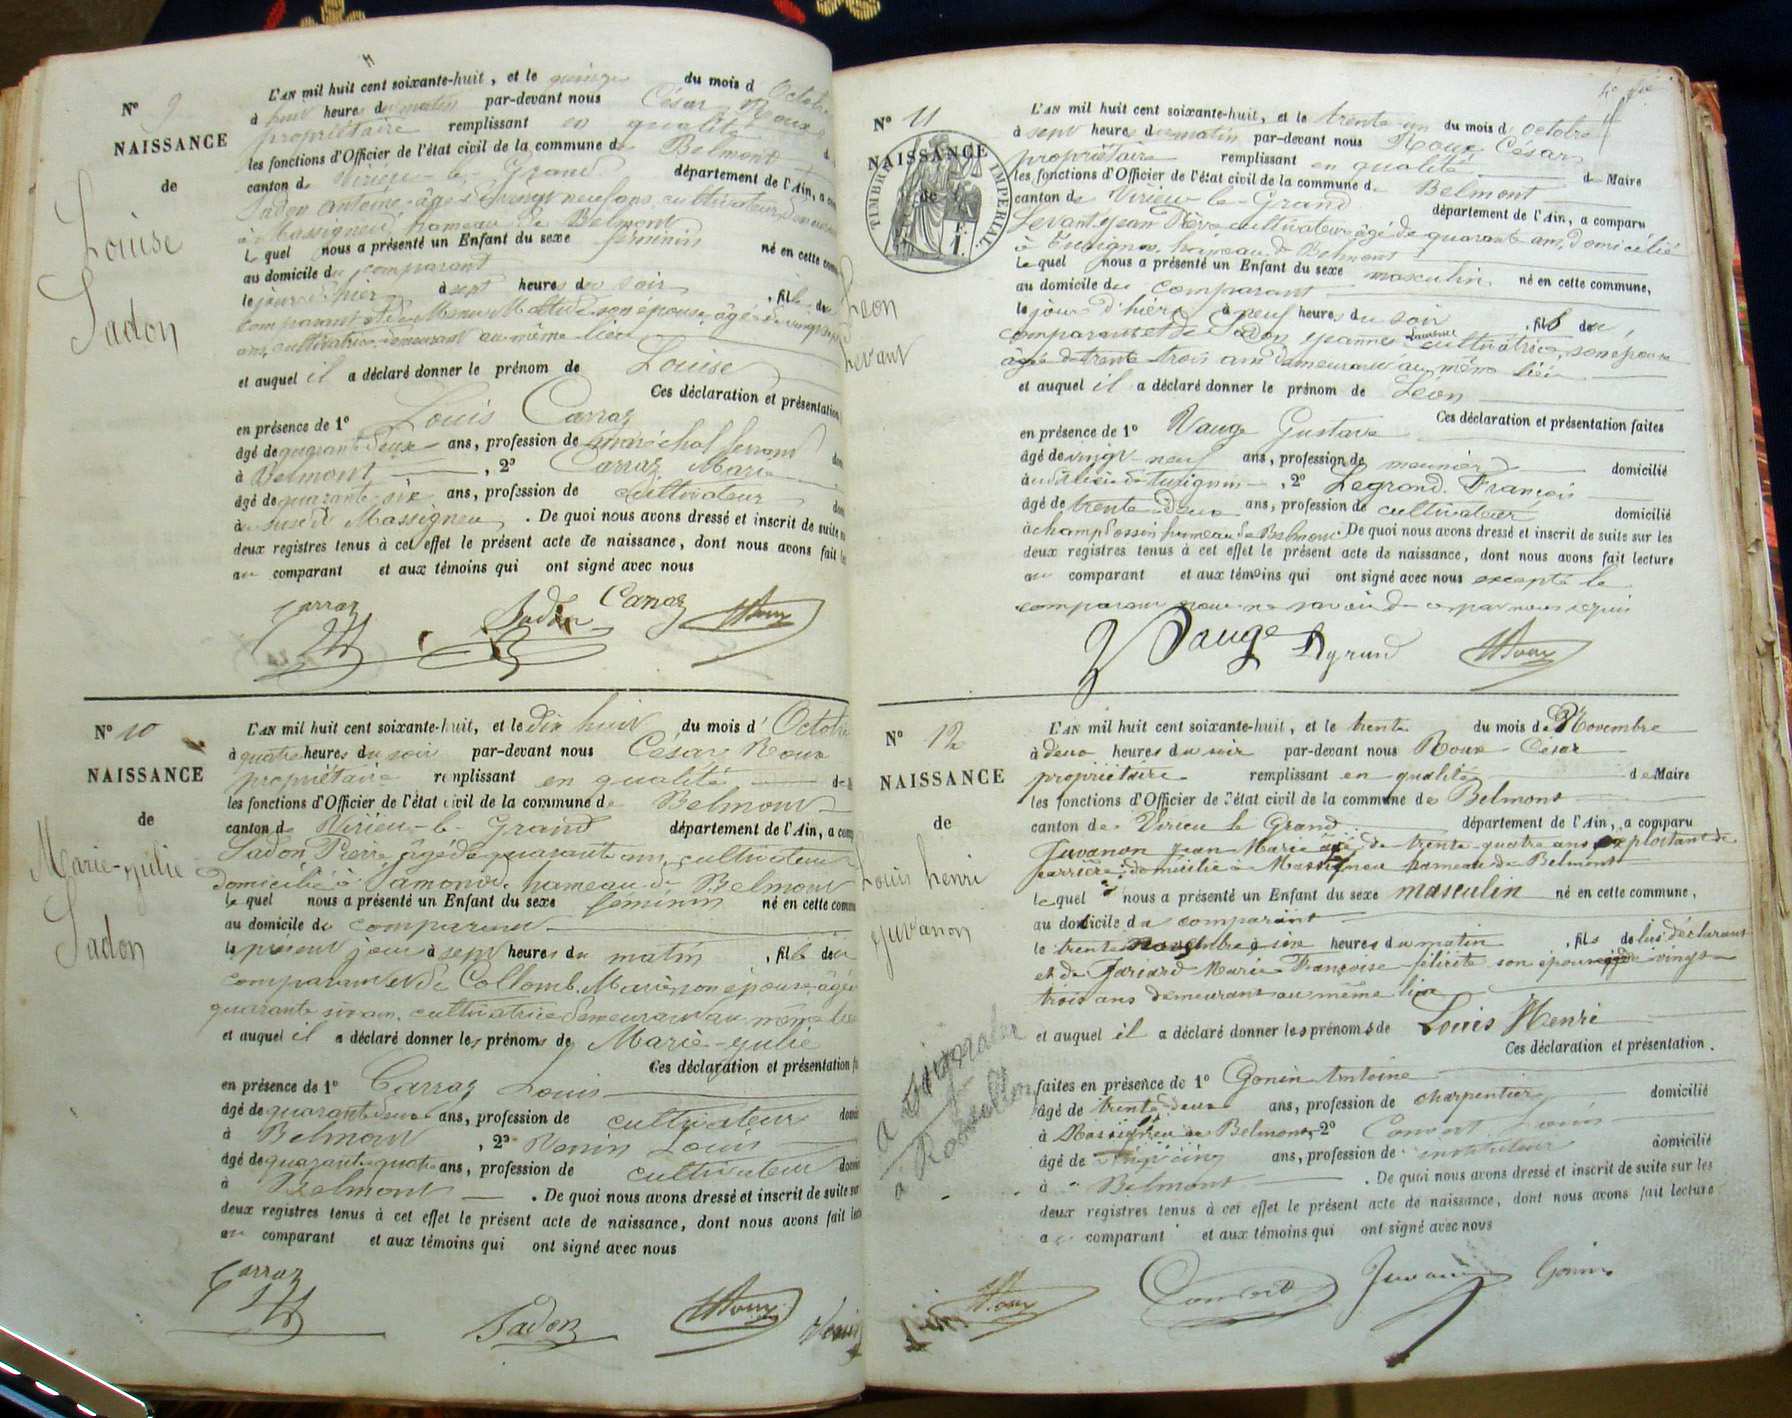 N° 9
NAISSANCE
de
Louise
Sadon
L'AN mil huit cent soixante-huit, et le quinze du mois d Octobre
à huit heures du matin par-devant nous César Roux
propriétaire remplissant en qualité d
les fonctions d'Officier de l'état civil de la commune de Belmont
canton de Virieu-le-Grand département de l'Ain, a com
Sadon Antoine âgé de vingt neuf ans, cultivateur, demeurant
à Massigneu, hameau de Belmont
le quel nous a présenté un Enfant du sexe féminin né en cette com
au domicile du comparant
le jour d'hier à sept heures du soir, fille du
comparant et de son épouse, âgée de vingt sept
ans, cultivatrice demeurant au même lieu
et auquel il a déclaré donner le prénom de Louise
Ces déclaration et présentation
en présence de 1° Louis Carraz
âgé de quarante deux ans, profession de maréchal ferrant dom
à Belmont, 2° Carraz Marie
âgé de quarante six ans, profession de cultivateur dom
à Massigneu. De quoi nous avons dressé et inscrit de suite su
deux registres tenus à cet effet le présent acte de naissance, dont nous avons fait lec
au comparant et aux témoins qui ont signé avec nous
Carraz Sadon Carraz Roux
N° 10
NAISSANCE
de
Marie-Julie
Sadon
L'AN mil huit cent soixante-huit, et le dix huit du mois d'Octobre
à quatre heures du soir par-devant nous César Roux
propriétaire remplissant en qualité de M
les fonctions d'Officier de l'état civil de la commune de Belmont
canton de Virieu-le-Grand département de l'Ain, a comp
Sadon Pierre âgé de quarante ans, cultivateur
domicilié à Samonod, hameau de Belmont
le quel nous a présenté un Enfant du sexe féminin né en cette comm
au domicile du comparant
le présent jour à sept heures du matin, fille du
comparant et de Collomb Marie son épouse, âgée
quarante six ans, cultivatrice demeurant au même lieu
et auquel il a déclaré donner les prénoms de Marie-Julie
Ces déclaration et présentation fa
en présence de 1° Carraz Louis
âgé de quarante deux ans, profession de cultivateur domi
à Belmont, 2° Venin Louis
âgé de quarante quatre ans, profession de cultivateur domi
à Belmont. De quoi nous avons dressé et inscrit de suite sur
deux registres tenus à cet effet le présent acte de naissance, dont nous avons fait lect
au comparant et aux témoins qui ont signé avec nous
Carraz Sadon Roux Venin
N° 11
NAISSANCE
de
TIMBRE IMPÉRIAL
1 F.
Léon
Levant
L'AN mil huit cent soixante-huit, et le trente un du mois d'octobre
à sept heures du matin par-devant nous Roux César
propriétaire remplissant en qualité de Maire
les fonctions d'Officier de l'état civil de la commune de Belmont
canton de Virieu-le-Grand département de l'Ain, a comparu
Levant Jean Pierre cultivateur âgé de quarante ans, domicilié
à hameau de Belmont
le quel nous a présenté un Enfant du sexe masculin né en cette commune,
au domicile du comparant
le jour d'hier à neuf heures du soir, fils du
comparant et de Sadon Jeanne cultivatrice, son épouse
âgée de trente trois ans demeurant au même lieu
et auquel il a déclaré donner le prénom de Léon
Ces déclaration et présentation faites
en présence de 1° Vauge Gustave
âgé de vingt neuf ans, profession de meunier domicilié
à, 2° Legrand François
âgé de trente deux ans, profession de cultivateur domicilié
à hameau de Belmont De quoi nous avons dressé et inscrit de suite sur les
deux registres tenus à cet effet le présent acte de naissance, dont nous avons fait lecture
au comparant et aux témoins qui ont signé avec nous excepté le
comparant pour ne savoir de ce par nous requis
Vauge Legrand Roux
N° 12
NAISSANCE
de
Louis henri
Juvanon
L'AN mil huit cent soixante-huit, et le trente du mois de Novembre
à deux heures du soir par-devant nous Roux César
propriétaire remplissant en qualité de Maire
les fonctions d'Officier de l'état civil de la commune de Belmont
canton de Virieu le Grand département de l'Ain, a comparu
Juvanon Jean Marie âgé de trente quatre ans exploitant de
carrière, domicilié à Massigneu hameau de Belmont
le quel nous a présenté un Enfant du sexe masculin né en cette commune,
au domicile du comparant
le trente novembre à six heures du matin, fils de lui déclarant
et de Marie Françoise félicité son épouse âgée de vingt
trois ans demeurant au même lieu
et auquel il a déclaré donner les prénoms de Louis Henri
Ces déclaration et présentation
faites en présence de 1° Gonin Antoine
âgé de trente deux ans, profession de charpentier domicilié
à Massigneu de Belmont, 2° Convert Louis
âgé de vingt cinq ans, profession de instituteur domicilié
à Belmont. De quoi nous avons dressé et inscrit de suite sur les
deux registres tenus à cet effet le présent acte de naissance, dont nous avons fait lecture
au comparant et aux témoins qui ont signé avec nous
Roux Convert Juvanon Gonin